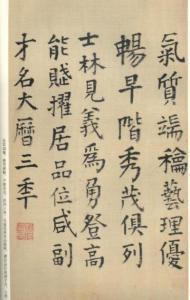 氣質端穐藝理優
暢早階秀茂俱列
士林見義為勇登高
能賦擢居品位咸副
才名大曆三年